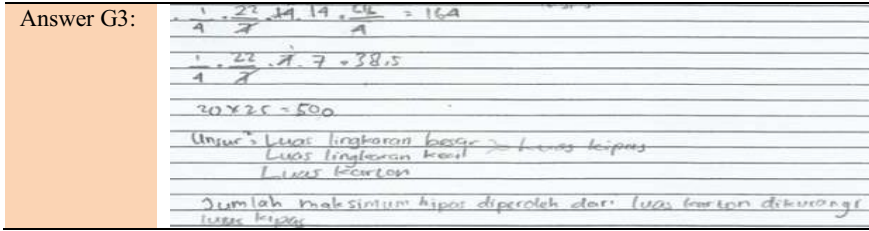 Answer G3:
1/4 · 22/7 · 14 · 14 · /4 = 164
1/4 · 22/7 · 7 · 7 = 38,5
20 x 25 = 500
Unsur²: Luas lingkaran besar > Luas kipas
Luas lingkaran kecil
Luas karton
Jumlah maksimum kipas diperoleh dari luas karton dikurangi
luas kipas